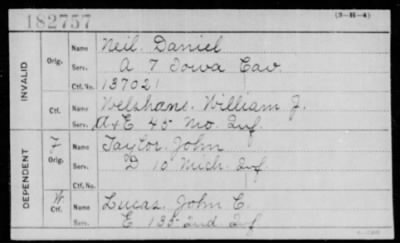 182757 (3-H-4)
INVALID
Orig. Name Neil. Daniel
Serv. A 7 Iowa Cav.
Ctf. No. 137021
Ctf. Name Welshane. William J.
Serv. A&E 45 Mo. Inf.
DEPENDENT
Orig. Name Taylor. John
Serv. D 10 Mich. Inf
Ctf. No.
W Ctf. Name Lucas. John C.
Serv. E 135 Ind If